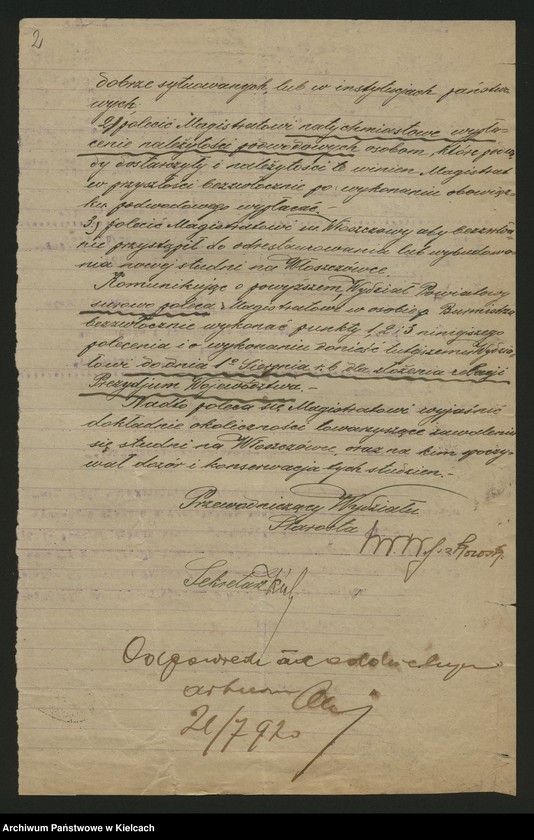 2
dobrze sytuowanych, lub w instytucjach państwo-
wych
2/ polecić Magistratowi natychmiastowe wypła-
cenie należytości podwodowych osobom, które
dy dostarczyły i należytości te winien Magistrat
w przyszłości bezzwłocznie po wykonaniu obowiąz-
ku podwodowego wypłacać.-
3/ polecić Magistratowi m. Włoszczowy aby bezzwłocz-
nie przystąpił do odrestaurowania lub wybudowa-
nia nowej studni na Włoszczówce.
Komunikując o powyższem Wydział Powiatowy
surowo poleca Magistratowi w osobie p. Burmistrza
bezzwłocznie wykonać punkty 1, 2 i 3 niniejszego
polecenia i o wykonaniu donieść tutejszemu Wydzia-
łowi do dnia 1go Sierpnia r.b. dla złożenia relacji
Prezydjum Województwa.-
Nadto poleca się Magistratowi wyjaśnić
dokładnie okoliczności towarzyszące zawaleniu
się studni na Włoszczówce, oraz na kim spoczy-
wał dozór i konserwacja tych studzien.-
Przewodniczący Wydziału
Starosta
Sekretarz
Odpowiedź na oddzielnym
arkuszu
21/7 920
Archiwum Państwowe w Kielcach